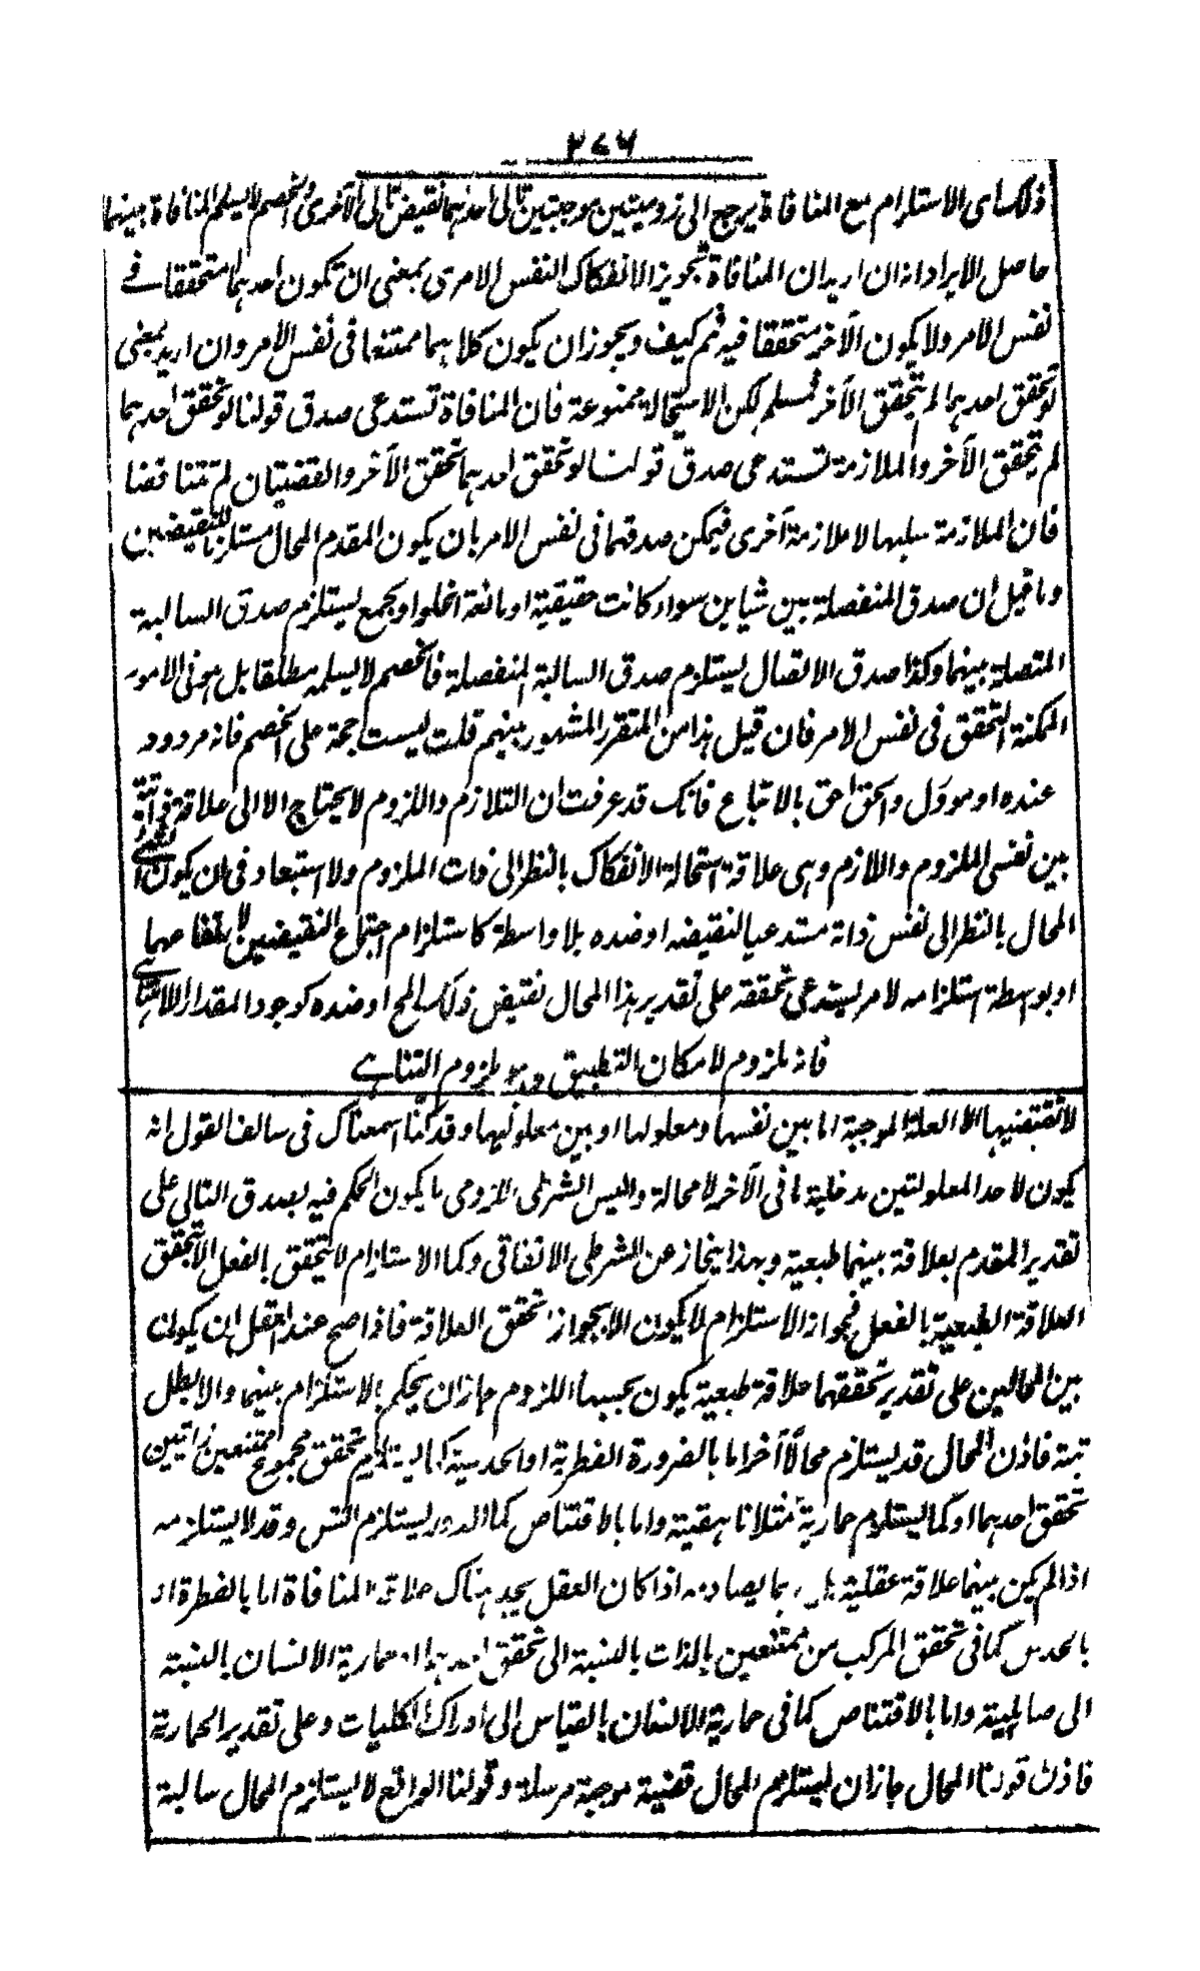 ٢٧٦
ذلك اى الاستلزام مع المنافاة يرجع الى لزوميتين موجبتين تالى احدهما نقيض تالى الآخرى والخصم لا يسلم المنافاة بينهما
حاصل الايراد انه ان اريد ان المنافاة تجويز الانفكاك النفس الامرى بمعنى ان تكون احدهما متحققا فى
نفس الامر ولا يكون الآخر متحققا فيه فمم كيف ويجوز ان يكون كلاهما ممتنعا فى نفس الامر وان اريد بمعنى
لو تحقق احدهما لم يتحقق الآخر فمسلم لكن الاستحالة ممنوعة فان المنافاة تستدعى صدق قولنا لو تحقق احدهما
لم يتحقق الآخر والملازمة تستدعى صدق قولنا لو تحقق احدهما تحقق الآخر والقضيتان لم تتناقضا
فان الملازمة سلبها لا ملازمة آخرى فيمكن صدقهما فى نفس الامر بان يكون المقدم المحال مستلزما للنقيضين
وما قيل ان صدق المنفصلة بين شيئين سواء كانت حقيقية او مانعة الخلو او الجمع يستلزم صدق السالبة
المتصلة بينهما وكذا صدق الاتصال يستلزم صدق السالبة المنفصلة فالخصم لا يسلمه مطلقا بل هو فى الامور
الممكنة التحقق فى نفس الامر فان قيل هذا من المتقرر المشهور بينهم قلت ليست حجة على الخصم فانه مردود
عنده او مؤول والحق احق بالاتباع فانك قد عرفت ان التلازم واللزوم لا يحتاج الا الى علاقة ذاتية
بين نفسى الملزوم واللازم وهى علاقة استحالة الانفكاك بالنظر الى ذات الملزوم ولا استبعاد فى ان يكون الشئ
المحال بالنظر الى نفس ذاته مستدعيا لنقيضه او ضده بلا واسطة كاستلزام اجتماع النقيضين لارتفاعهما
او بواسطة استلزامه لامر يستدعى تحققه على تقدير هذا المحال نقيض ذلك المح او ضده كوجود المقدار اللامتناهى
فانه ملزوم لامكان التطبيق وهو ملزوم التناهى
لا تقتضيها الا العلة الموجبة اما بين نفسها ومعلولها او بين معلوليها وقد كنا اسمعناك فى سالف القول انه
يكون لاحد المعلولتين مدخلية ما فى الآخر لا محالة وليس الشرطى اللزومى ما يكون الحكم فيه بصدق التالى على
تقدير المقدم بعلاقة بينهما طبعية وبهذا ينحاز عن الشرطى الاتفاقى وكما الاستلزام لا يتحقق بالفعل الا بتحقق
العلاقة الطبعية بالفعل فجواز الاستلزام لا يكون الا بجواز تحقق العلاقة فاذا صح عند العقل ان يكون
بين المحالين على تقدير تحققهما علاقة طبعية يكون بحسبها اللزوم جاز ان يحكم بالاستلزام بينهما والا بطل
بتة فاذن المحال قد يستلزم محالا آخر اما بالضرورة الفطرية او الحدسية كما يستلزم تحقق مجموع ممتنعين ذاتيين
تحقق احدهما او كما يستلزم حمارية مثلا ناهقيته واما بالاقتناص كما الدور يستلزم التس وقد لا يستلزمه
اذا لم يكن بينهما علاقة عقلية بل ربما يصادمه اذا كان العقل يجد هناك علاقة المنافاة اما بالفطرة او
بالحدس كما فى تحقق المركب من ممتنعين بالذات بالنسبة الى تحقق احدهما او حمارية الانسان بالنسبة
الى صاهليته واما بالاقتناص كما فى حمارية الانسان بالقياس الى ادراك الكليات وعلى تقدير الحمارية
فاذن قولنا المحال جاز ان يستلزم المحال قضية موجبة مرسلة وقولنا الواقع لا يستلزم المحال سالبة